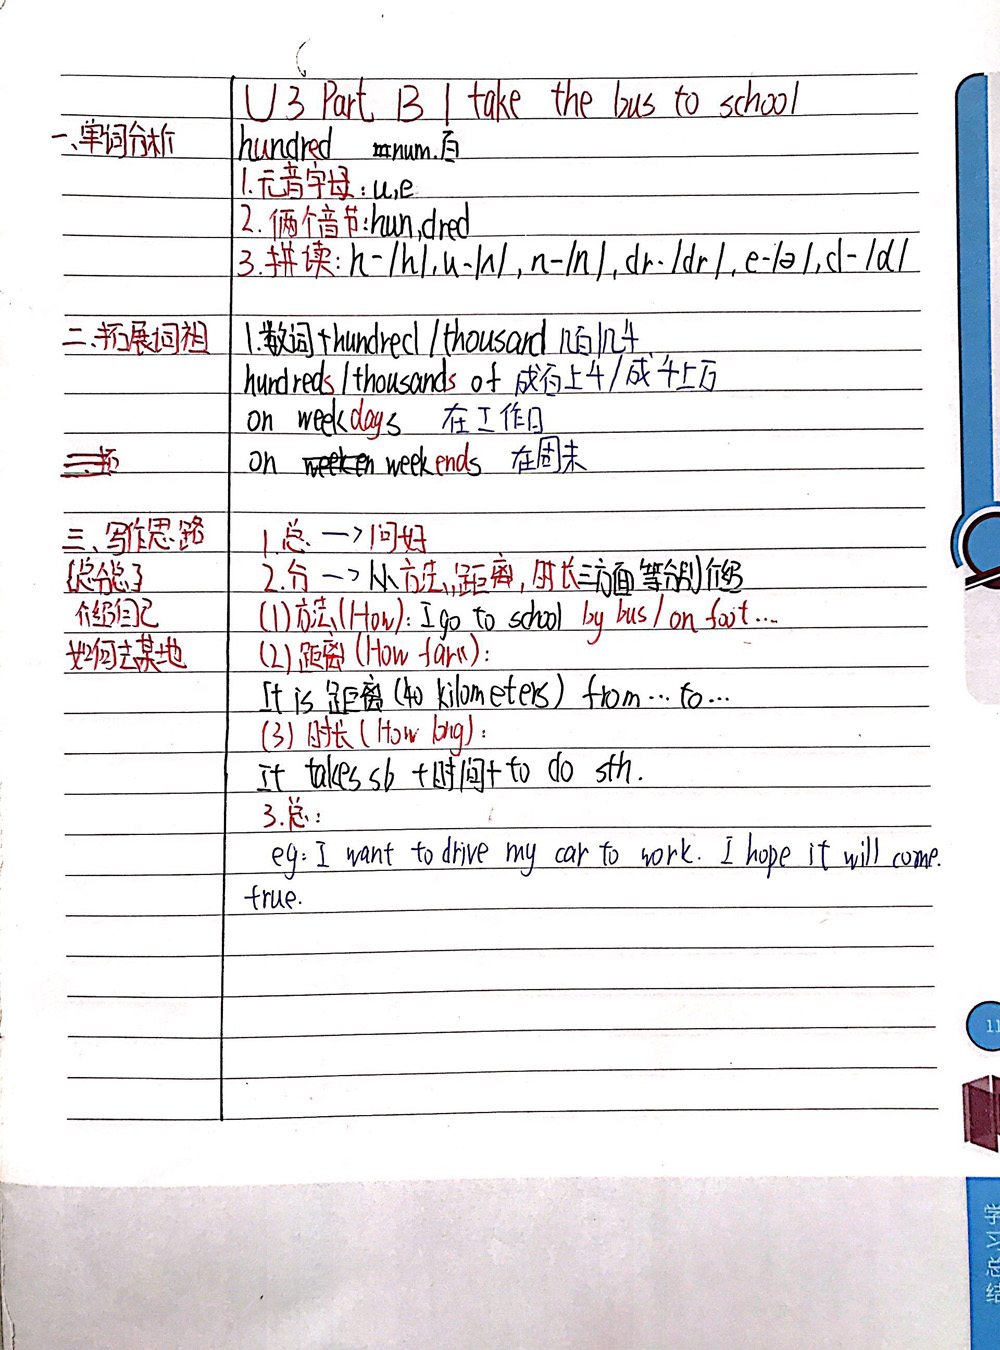 U3 Part B I take the bus to school
一、单词分析
hundred num.百
1.元音字母:u,e
2.俩个音节:hun,dred
3.拼读:h-/h/,u-/ʌ/,n-/n/,dr-/dr/,e-/ə/,d-/d/
二、拓展词祖
1.数词+hundred/thousand 几百/几千
hundreds/thousands of 成百上千/成千上万
on weekdays 在工作日
on weekends 在周末
三、写作思路
1.总 —> 问好
{总分总}
2.分 —> 从方法,距离,时长三方面等分别介绍
介绍自己
(1)方法(How): I go to school by bus/on foot...
如何去某地
(2)距离(How far):
It is 距离(40 kilometers) from...to...
(3)时长(How long):
It takes sb +时间+ to do sth.
3.总:
eg: I want to drive my car to work. I hope it will come.
true.
11
学习总结